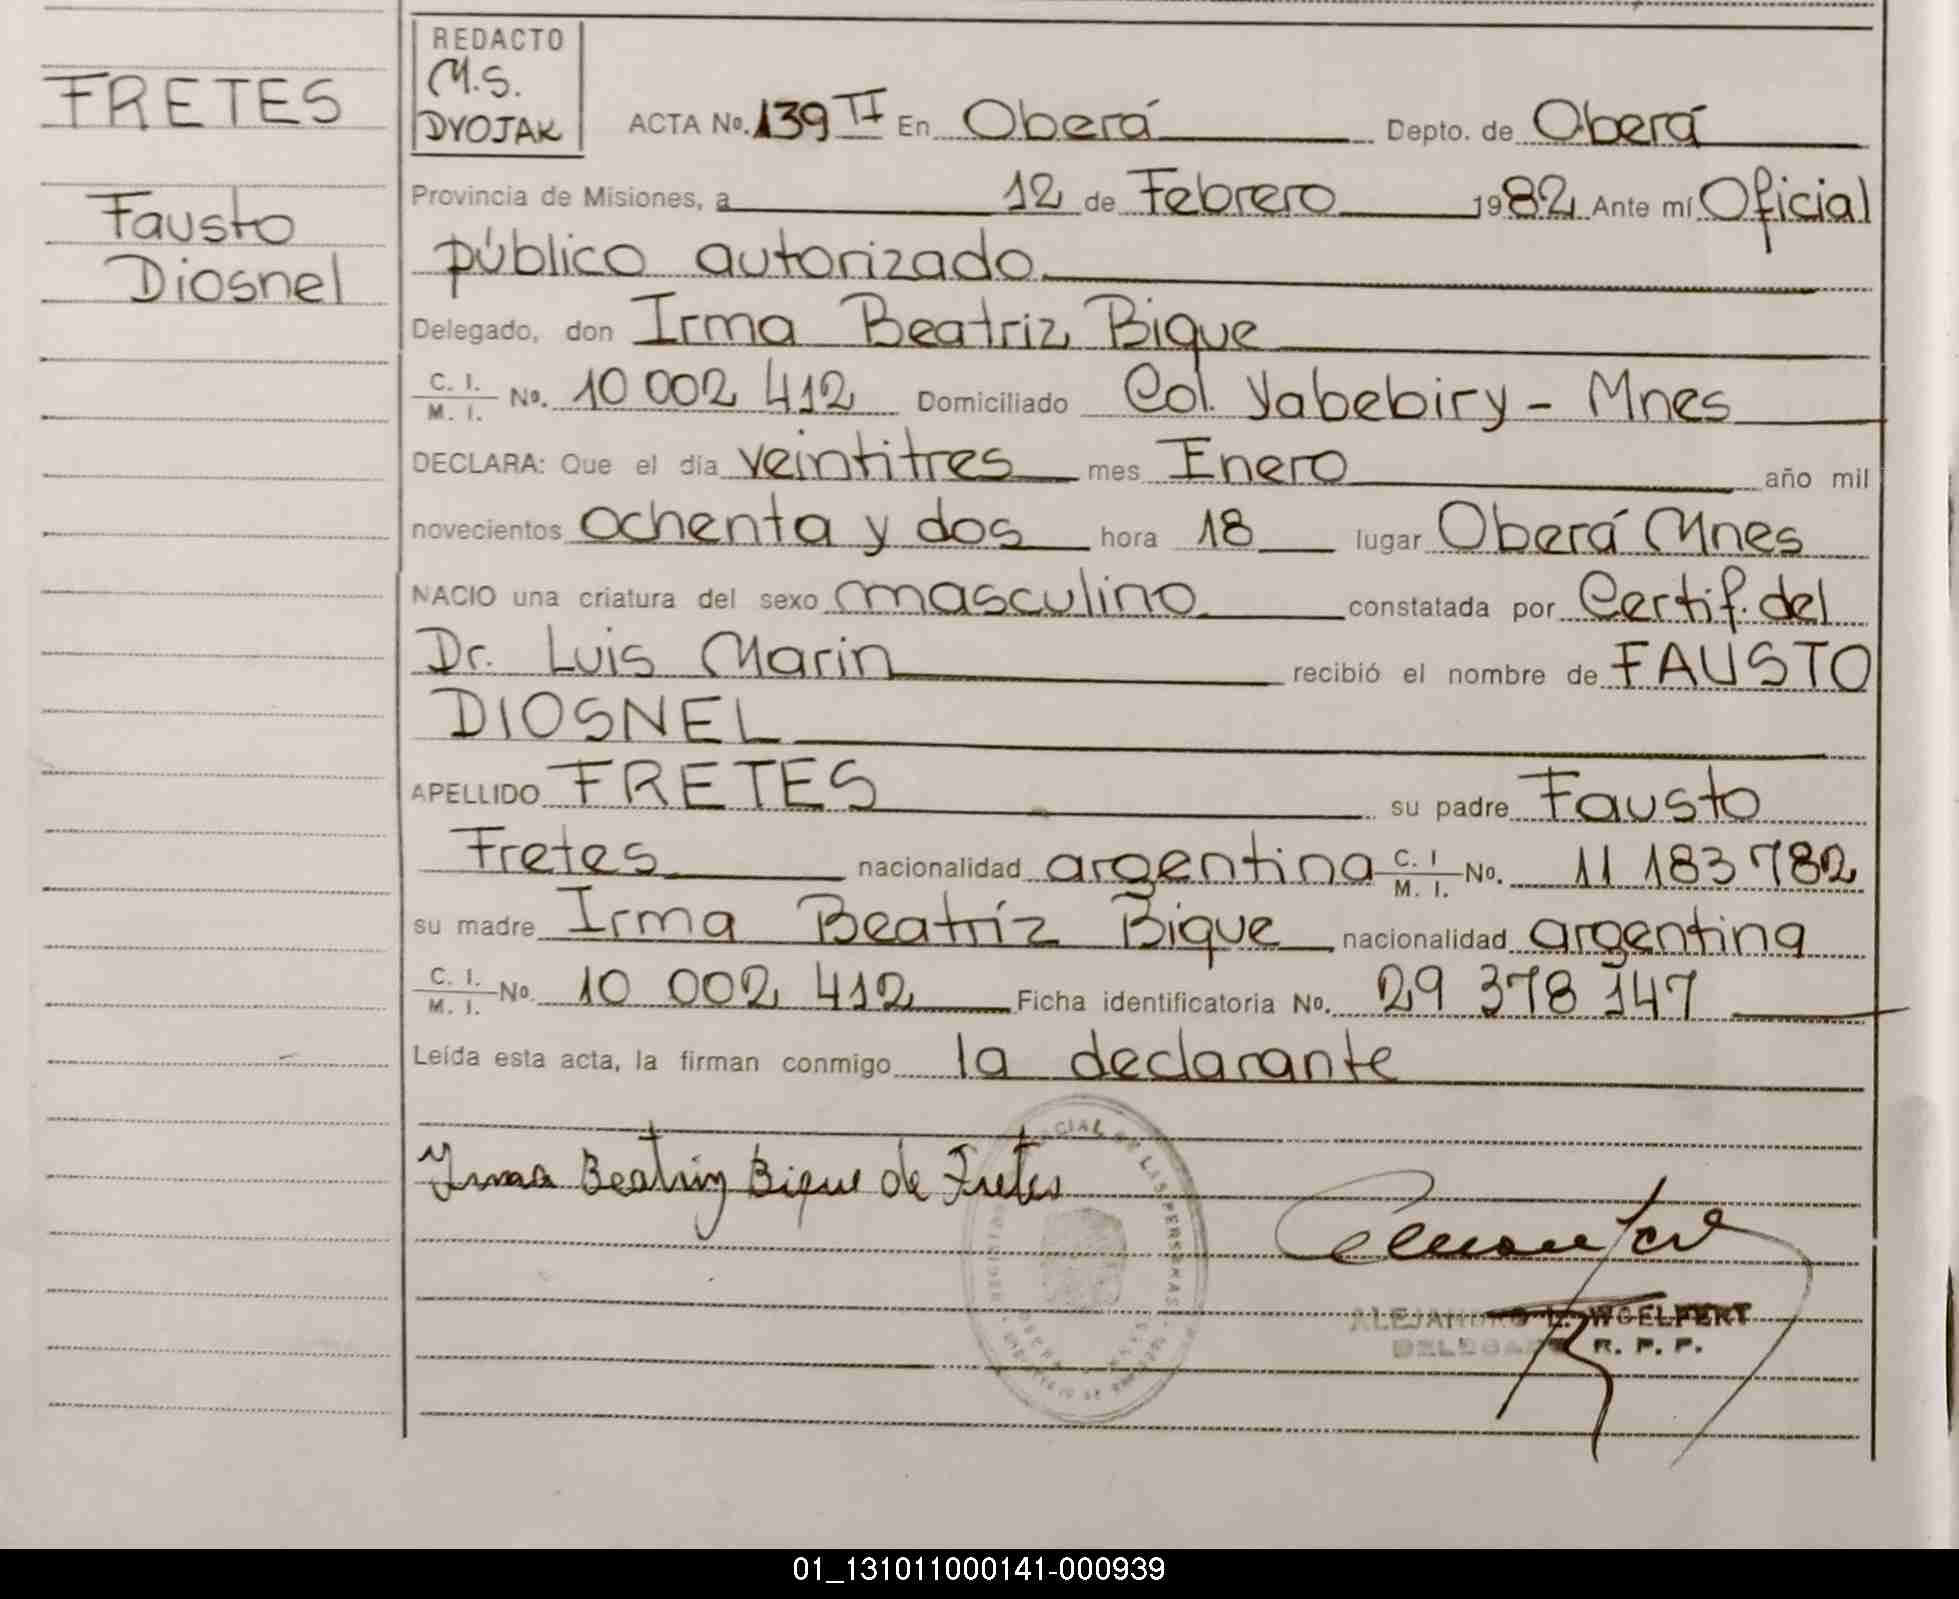 FRETES
Fausto
Diosnel
REDACTO
M.S.
DVOJAK
ACTA No. 139 II En Oberá Depto. de Oberá
Provincia de Misiones, a 12 de Febrero 1982 Ante mí Oficial
público autorizado
Delegado, don Irma Beatriz Bique
C. I. / M. I. No. 10 002 412 Domiciliado Col. Yabebiry - Mnes
DECLARA: Que el día veintitres mes Enero año mil
novecientos ochenta y dos hora 18 lugar Oberá Mnes
NACIO una criatura del sexo masculino constatada por Certif. del
Dr. Luis Marin recibió el nombre de FAUSTO
DIOSNEL
APELLIDO FRETES su padre Fausto
Fretes nacionalidad argentina C. I / M. I. No. 11 183 782
su madre Irma Beatríz Bique nacionalidad argentina
C. I. / M. I. No. 10 002 412 Ficha identificatoria No. 29 378 147
Leída esta acta, la firman conmigo la declarante
Irma Beatriz Bique de Fretes
DE LAS PERSONAS
WOELFERT
R. P. P.
01_131011000141-000939